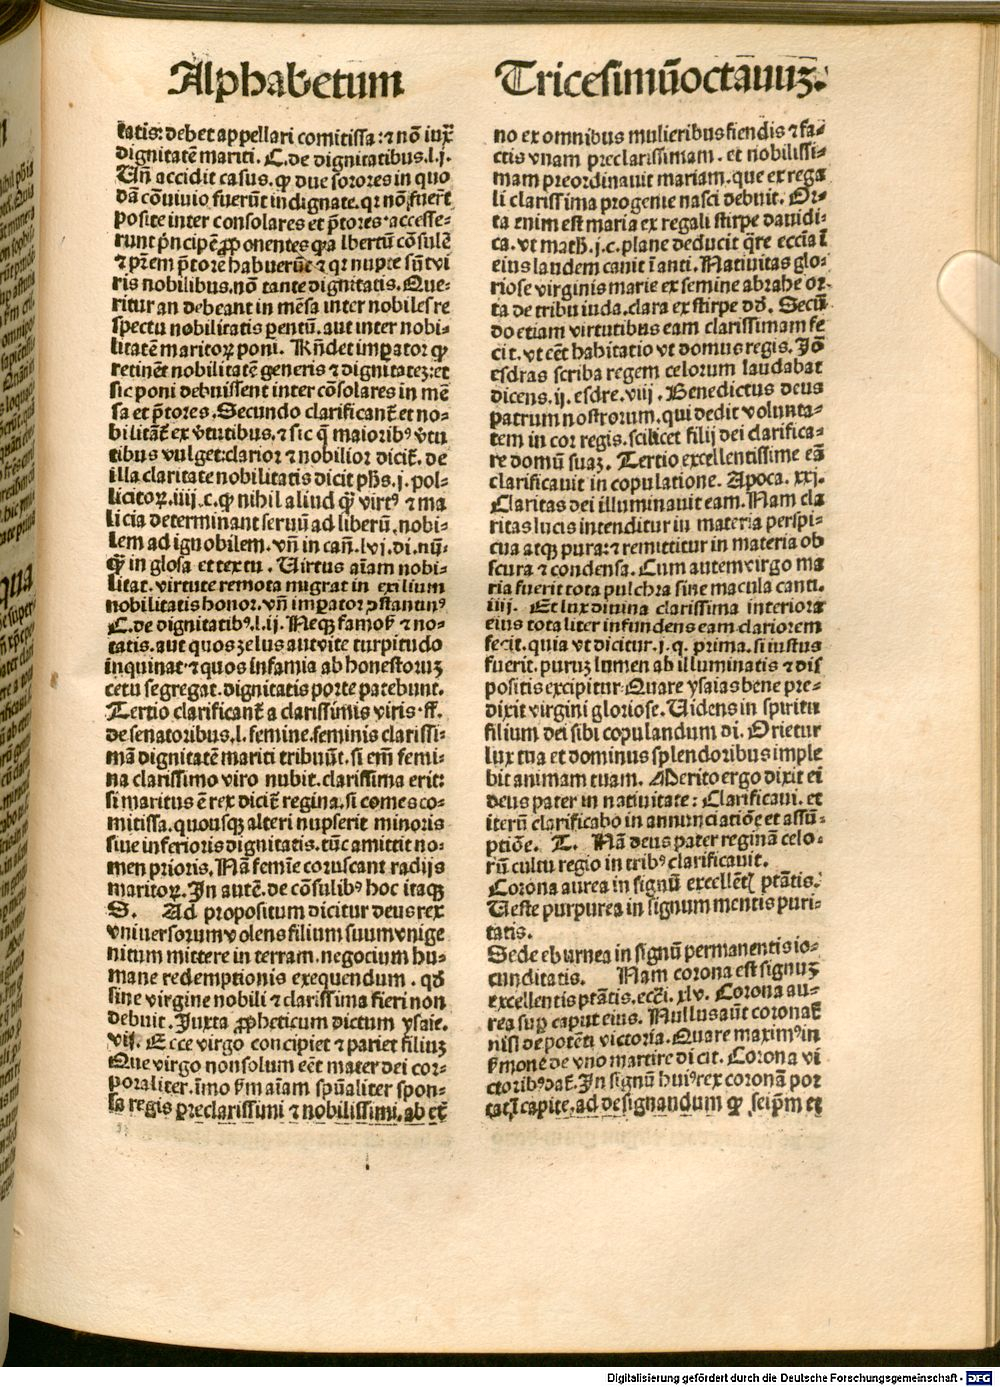 Alphabetum
Tricesimūoctauuʒ.
tatis: debet appellari comitissa: ⁊ nō iux̄
dignitatē mariti. C. de dignitatibus. l. j.
Uñ accidit casus. ꝙ due sorores in quo
dā cōuiuio fuerūt indignate. qꝛ nō fuerūt
posite inter consolares et p̄tores· accesse⸗
runt pn̄cipē ꝓponentes qꝛ a lbertū cōsulē
⁊ pr̄em p̄tore habuerūt ⁊ qꝛ nupte sūt vi
ris nobilibus. nō tante dignitatis. Que⸗
ritur an debeant in mēsa inter nobiles re
spectu nobilitatis pentū. aut inter nobi⸗
litatē maritoꝝ poni. Rn̄det imꝑator ꝙ
retinēt nobilitatē generis ⁊ dignitateʒ: et
sic poni debuissent inter cōsolares in mē
sa et p̄tores. Secundo clarificant̄ et no⸗
bilitāt̄ ex v̄tutibus. ⁊ sic q̄ maioribꝰ v̄tu
tibus vulget: clarior ⁊ nobilior dicit̄. de
illa claritate nobilitatis dicit ph̄s. j. pol⸗
liticoꝝ. iiij. c. ꝙ nihil aliud q̄ꝫ virtꝰ ⁊ ma
licia determinant seruū ad liberū. nobi⸗
lem ad ignobilem. vn̄ in can̄. lvj. di. nū⸗
q̄ꝫ in glosa et textu. Uirtus aīam nobi⸗
litat. virtute remota migrat in exilium
nobilitatis honor. vn̄ imꝑator ꝯstantinꝰ
C. de dignitatibꝰ. l. ij. Neqꝫ famosꝰ ⁊ no⸗
tatis. aut quos zelus aut vite turpitudo
inquinat· ⁊ quos infamia ab honestoruʒ
cetu segregat. dignitatis porte patebunt.
Tertio clarificant̄ a clarissimis viris· ff.
de senatoribus. l. femine. feminis clarissi⸗
mā dignitatē mariti tribuūt. si em̄ femi⸗
na clarissimo viro nubit. clarissima erit:
si maritus ē rex dicit̄ regina. si comes co⸗
mitissa. quousqꝫ alteri nupserit minoris
siue inferioris dignitatis. tūc amittit no⸗
men prioris. Nā femīe coruscant radijs
maritoꝝ. In autē. de cōsulibꝰ hoc itaqꝫ
S. Ad propositum dicitur deus rex
vniuersorum volens filium suum vnige
nitum mittere in terram. negocium hu⸗
mane redemptionis exequendum. qd̄
sine virgine nobili ⁊ clarissima fieri non
debuit. Juxta ꝓpheticum dictum ysaie.
vij. Ecce virgo concipiet ⁊ pariet filiuʒ
Que virgo non solum eēt mater dei cor⸗
poraliter. īmo s̄m aīam spūaliter spon⸗
sa regis preclarissimi ⁊ nobilissimi. ab et̄
no ex omnibus mulieribus fiendis ⁊ fa⸗
ctis vnam preclarissimam. et nobilissi⸗
mam preordinauit mariam. que ex rega
li clarissima progenie nasci debuit. Or⸗
ta enim est maria ex regali stirpe dauidi⸗
ca. vt math̄. j. c. plane deducit q̄re eccīa ī
eius laudem canit īanti. Natiuitas glo⸗
riose virginis marie ex semine abrahe or⸗
ta de tribu iuda. clara ex stirpe dd̄. Secū
do etiam virtutibus eam clarissimam fe
cit. vt eēt habitatio vt domus regis. Jō
esdras scriba regem celorum laudabat
dicens. ij. esdre. viij. Benedictus deus
patrum nostrorum. qui dedit volunta⸗
tem in cor regis. scilicet filij dei clarifica⸗
re domū suaʒ. Tertio excellentissime eā
clarificauit in copulatione. Apoca. xxj.
Claritas dei illuminauit eam. Nam cla
ritas lucis intenditur in materia perspi⸗
cua atqꝫ pura: ⁊ remittitur in materia ob
scura ⁊ condensa. Cum autem virgo ma
ria fuerit tota pulchra sine macula canti.
iiij. Et lux diuina clarissima interiora
eius totaliter infundens eam clariorem
fecit. quia vt dicitur. j. q. prima. si iustus
fuerit. puruʒ lumen ab illuminatis ⁊ dis
positis excipitur· Quare ysaias bene pre⸗
dixit virgini gloriose. Uidens in spiritu
filium dei sibi copulandum di. Orietur
lux tua et dominus splendoribus imple
bit animam tuam. Merito ergo dixit ei
deus pater in natiuitate: Clarificaui. et
iterū clarificabo in annunciatiōe et assū⸗
ptiōe. T. Nā deus pater reginam celo⸗
rū cultu regio in tribꝰ clarificauit.
Corona aurea in signū excellēt̄ ptātis.
Ueste purpurea in signum mentis puri⸗
tatis.
Sede eburnea in signū permanentis io⸗
cunditatis. Nam corona est signuʒ
excellentis ptātis. ecc̄i. xlv. Corona au⸗
rea suꝑ caput eius. Nullus aūt coronat̄
nisi de potēti victoria. Quare maximꝰ in
s̄mone de vno martire dicit. Corona vi
ctoribꝰ dat̄. In signū huiꝰ rex coronā por
tat ī capite. ad designandum ꝙ seip̄m et
Digitalisierung gefördert durch die Deutsche Forschungsgemeinschaft - DFG